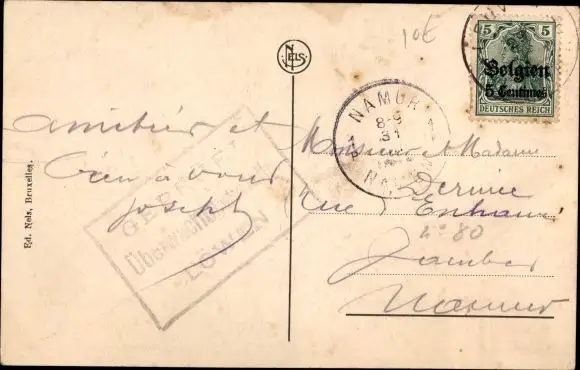 10€
NELS
5 5
Belgien
5 Centimes
DEUTSCHES REICH
NAMUR 1
8-9
31
NAMUR
amitiés et
bien à vous
Joseph
GEPRÜFT
Überwachungs
LÖWEN
Monsieur et Madame
(rue)
n° 80
Jambes
Namur
Ed. Nels, Bruxelles.